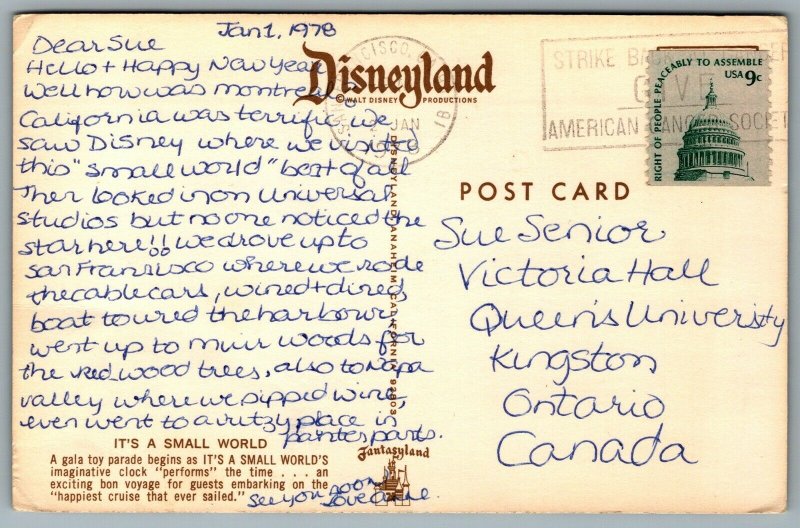 Jan 1, 1978
Dear Sue
Hello + Happy New Year
Well how was montreal
California was terrific we
saw Disney where we visited
this "small world" best of all
Then looked in on Universal
studios but no one noticed the
star here!! we drove up to
San Fransisco where we rode
the cable cars, wined + dined,
boat toured the harbour
went up to muir woods for
the red wood trees, also to Napa
valley where we sipped wine,
even went to a ritzy place in
painter pants.
see you soon
Love anne
IT'S A SMALL WORLD
A gala toy parade begins as IT'S A SMALL WORLD'S
imaginative clock "performs" the time . . . an
exciting bon voyage for guests embarking on the
"happiest cruise that ever sailed."
Fantasyland
Disneyland
© WALT DISNEY PRODUCTIONS
DISNEYLAND/ANAHEIM, CALIFORNIA 92803
JAN
STRIKE
AMERICAN CANCER SOCIETY
RIGHT OF PEOPLE PEACEABLY TO ASSEMBLE
USA 9c
POST CARD
Sue Senior
Victoria Hall
Queen's University
Kingston
Ontario
Canada